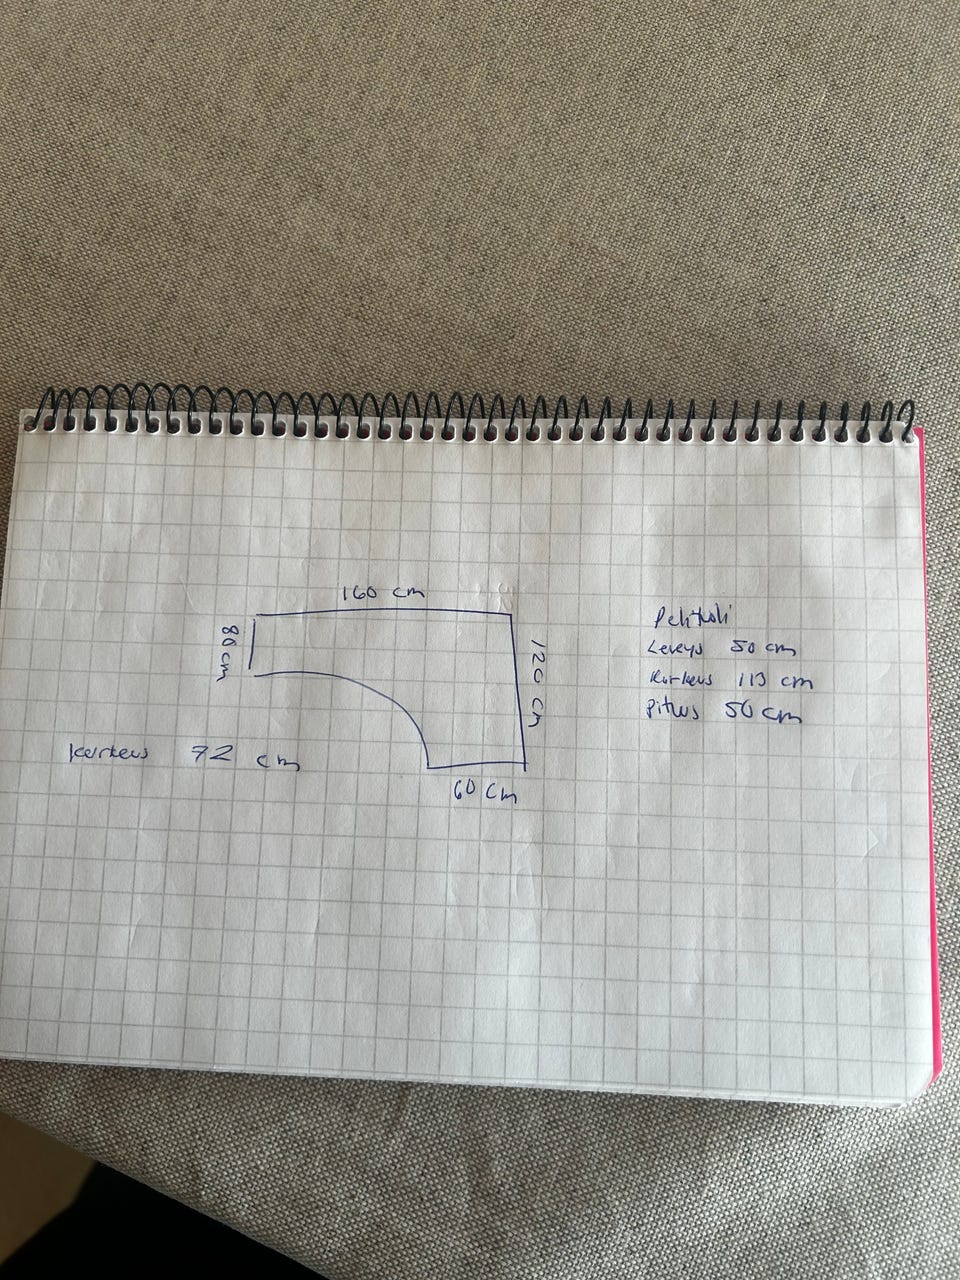 160 cm
80 cm
120 cm
60 cm
Korkeus 72 cm
Pelituoli
Leveys 50 cm
Korkeus 113 cm
Pituus 50 cm